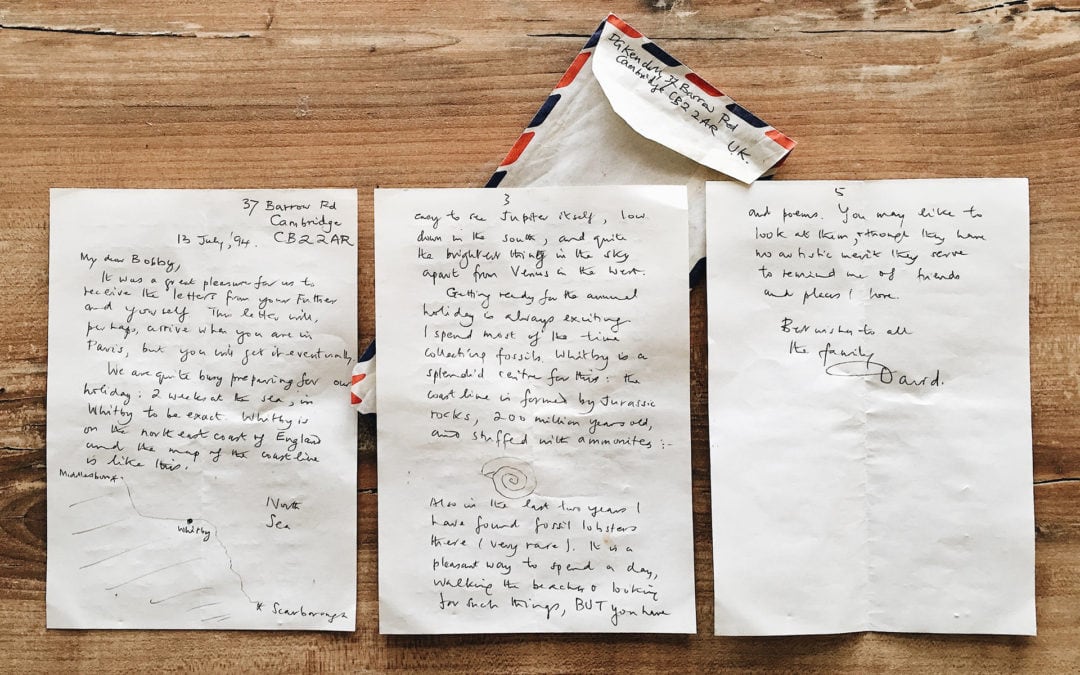 37 Barrow Rd
Cambridge
CB2 2AR
13 July, '94.
My dear Bobby,
It was a great pleasure for us to
receive the letters from your Father
and yourself This letter will,
perhaps, arrive when you are in
Paris, but you will get it eventually
We are quite busy preparing for our
holiday: 2 weeks at the sea, in
Whitby to be exact. Whitby is
on the north east coast of England
and the map of the coastline
is like this.
Middlesboro
North
Sea
Whitby
Scarborough
3
easy to see Jupiter itself, low
down in the south, and quite
the brightest thing in the sky
apart from Venus in the West.
Getting ready for the annual
holiday is always exciting
I spend most of the time
collecting fossils. Whitby is a
splendid centre for this: the
coast line is formed by Jurassic
rocks, 200 million years old,
and stuffed with ammonites :-
Also in the last two years I
have found fossil lobsters
there (very rare). It is a
pleasant way to spend a day,
walking the beaches looking
for such things, BUT you have
5
and poems. You may like to
look at them, though they have
no artistic merit they serve
to remind me of friends
and places I love.
Best wishes to all
the family
David.
37 Barrow Rd
Cambridge CB2 2AR
U.K.